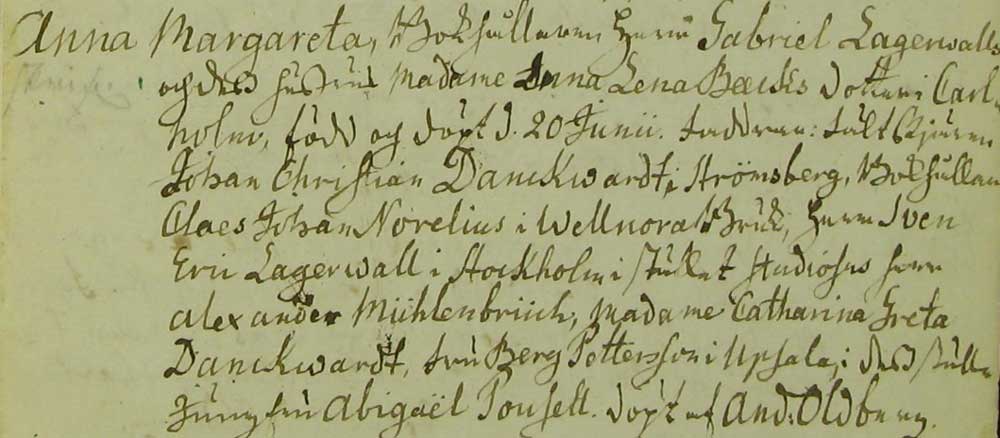 Anna Margareta, Bokhållaren Herr Gabriel Lagerwalls
och dess hustrus Madame Anna Lena Bæcks dotter i Carl,
holm, född och döpt d. 20 Junii. faddrar: fält
Johan Christian Danckwardt i Strömsberg, Bokhållaren
Claes Johan Norelius i Wellnora Bruk, Herr Sven
Eric Lagerwall i Stockholm i stället Studiosus Herr
Alexander Mühlenbrüch, Madame Catharina Greta
Danckwardt, fru Berg Pettersson i Upsala, i dess ställe
Jungfru Abigaël Pousett. döpt af And: Oldberg.